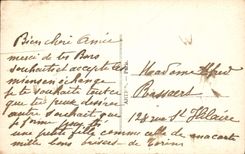 Bien chère Amie
merci de tes Bons
souhaits et accepte les
miens en échange
je te souhaite tout ce
que tu peux desirer
autre souhait que
je forme pour
une petite fille comme celle de ma carte
mille bons baisers de
Madame Alfred
Bossaert
128 rue St Hilaire